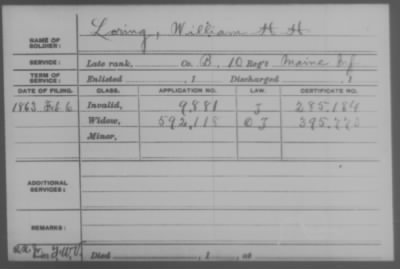 NAME OF SOLDIER: Loring, William H H
SERVICE: Late rank, Co. B, 10 Reg't Maine Inf
TERM OF SERVICE: Enlisted , 1 Discharged , 1
DATE OF FILING. CLASS. APPLICATION NO. LAW. CERTIFICATE NO.
1863 Feb. 6 Invalid, 9,881 J 285,184
Widow, 592,118 J 395,773
Minor,
ADDITIONAL SERVICES:
REMARKS:
Died , 1 , at